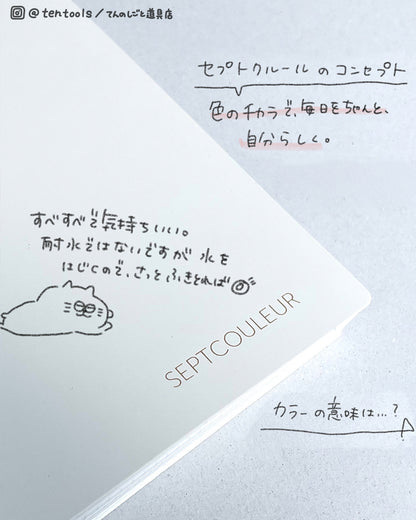 @tentools/てんのしごと道具店
セプトクルールのコンセプト
色のチカラで、毎日をちゃんと、
自分らしく。
すべすべで気持ちいい。
耐水ではないですが水を
はじくので、さっとふきとれば◎
SEPTCOULEUR
カラーの意味は…?